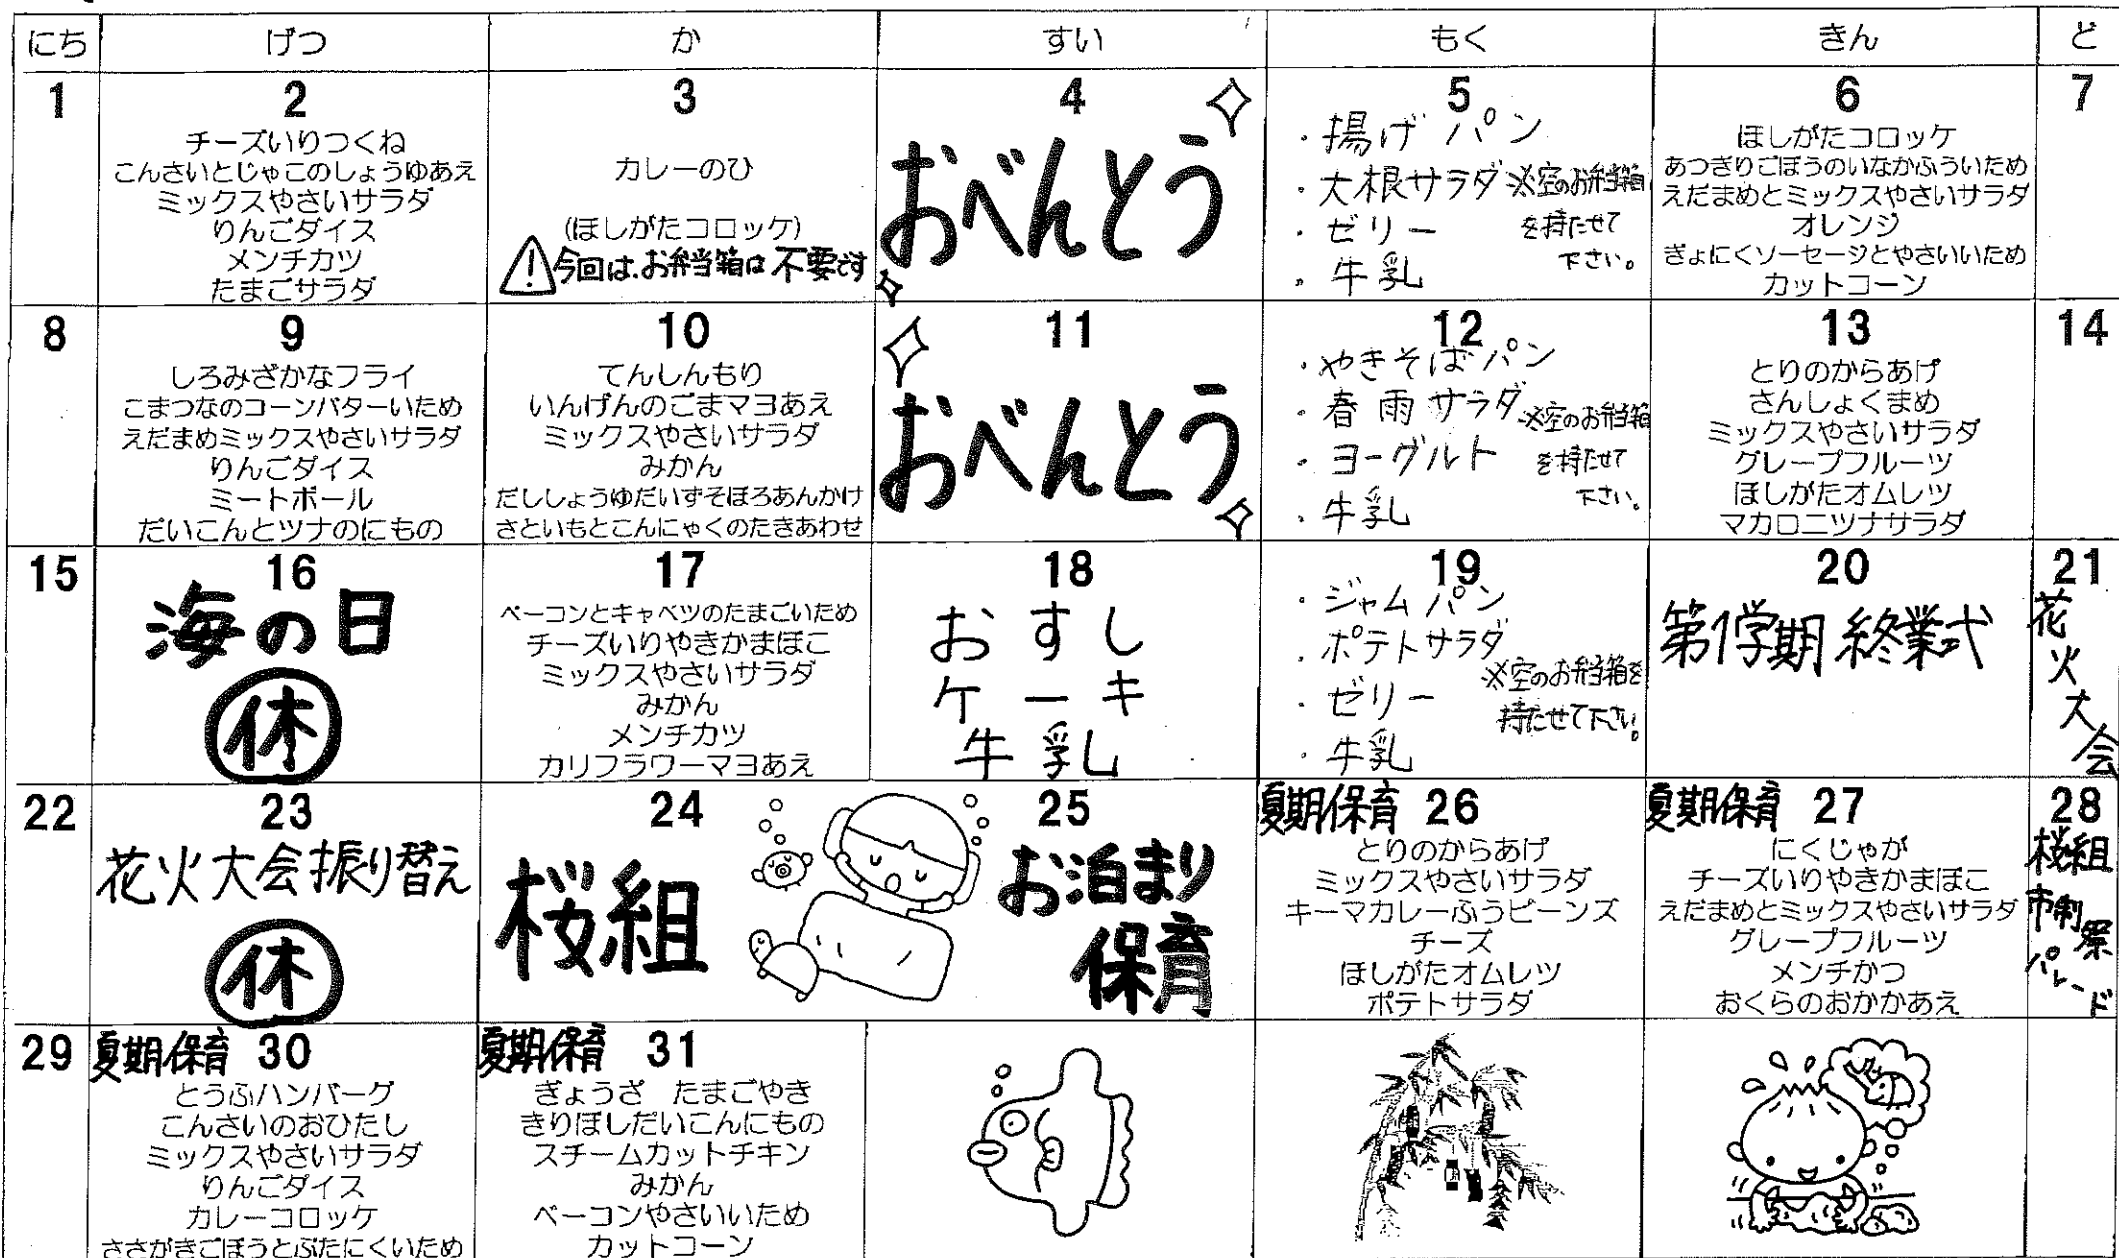 にち げつ か すい もく きん ど
1
2
チーズいりつくね
こんさいとじゃこのしょうゆあえ
ミックスやさいサラダ
りんごダイス
メンチカツ
たまごサラダ
3
カレーのひ
(ほしがたコロッケ)
今回は、お弁当箱は不要です
4
おべんとう
5
・揚げパン
・大根サラダ ※空のお弁当箱
・ゼリー を持たせて
・牛乳 下さい。
6
ほしがたコロッケ
あつぎりごぼうのいなかふういため
えだまめとミックスやさいサラダ
オレンジ
ぎょにくソーセージとやさいいため
カットコーン
7
8
9
しろみざかなフライ
こまつなのコーンバターいため
えだまめミックスやさいサラダ
りんごダイス
ミートボール
だいこんとツナのにもの
10
てんしんもり
いんげんのごまマヨあえ
ミックスやさいサラダ
みかん
だししょうゆだいずそぼろあんかけ
さといもとこんにゃくのたきあわせ
11
おべんとう
12
・やきそばパン
・春雨サラダ ※空のお弁当箱
・ヨーグルト を持たせて
・牛乳 下さい。
13
とりのからあげ
さんしょくまめ
ミックスやさいサラダ
グレープフルーツ
ほしがたオムレツ
マカロニツナサラダ
14
15
16
海の日
休
17
ベーコンとキャベツのたまごいため
チーズいりやきかまぼこ
ミックスやさいサラダ
みかん
メンチカツ
カリフラワーマヨあえ
18
おすし
ケーキ
牛乳
19
・ジャムパン
・ポテトサラダ
・ゼリー ※空のお弁当箱を
持たせて下さい。
・牛乳
20
第1学期 終業式
21
花火大会
22
23
花火大会振り替え
休
24
桜組
25
お泊まり
保育
夏期保育 26
とりのからあげ
ミックスやさいサラダ
キーマカレーふうビーンズ
チーズ
ほしがたオムレツ
ポテトサラダ
夏期保育 27
にくじゃが
チーズいりやきかまぼこ
えだまめとミックスやさいサラダ
グレープフルーツ
メンチかつ
おくらのおかかあえ
28
桜組
市制祭
パレード
29
夏期保育 30
とうふハンバーグ
こんさいのおひたし
ミックスやさいサラダ
りんごダイス
カレーコロッケ
ささがきごぼうとぶたにくいため
夏期保育 31
ぎょうざ たまごやき
きりぼしだいこんにもの
スチームカットチキン
みかん
ベーコンやさいいため
カットコーン